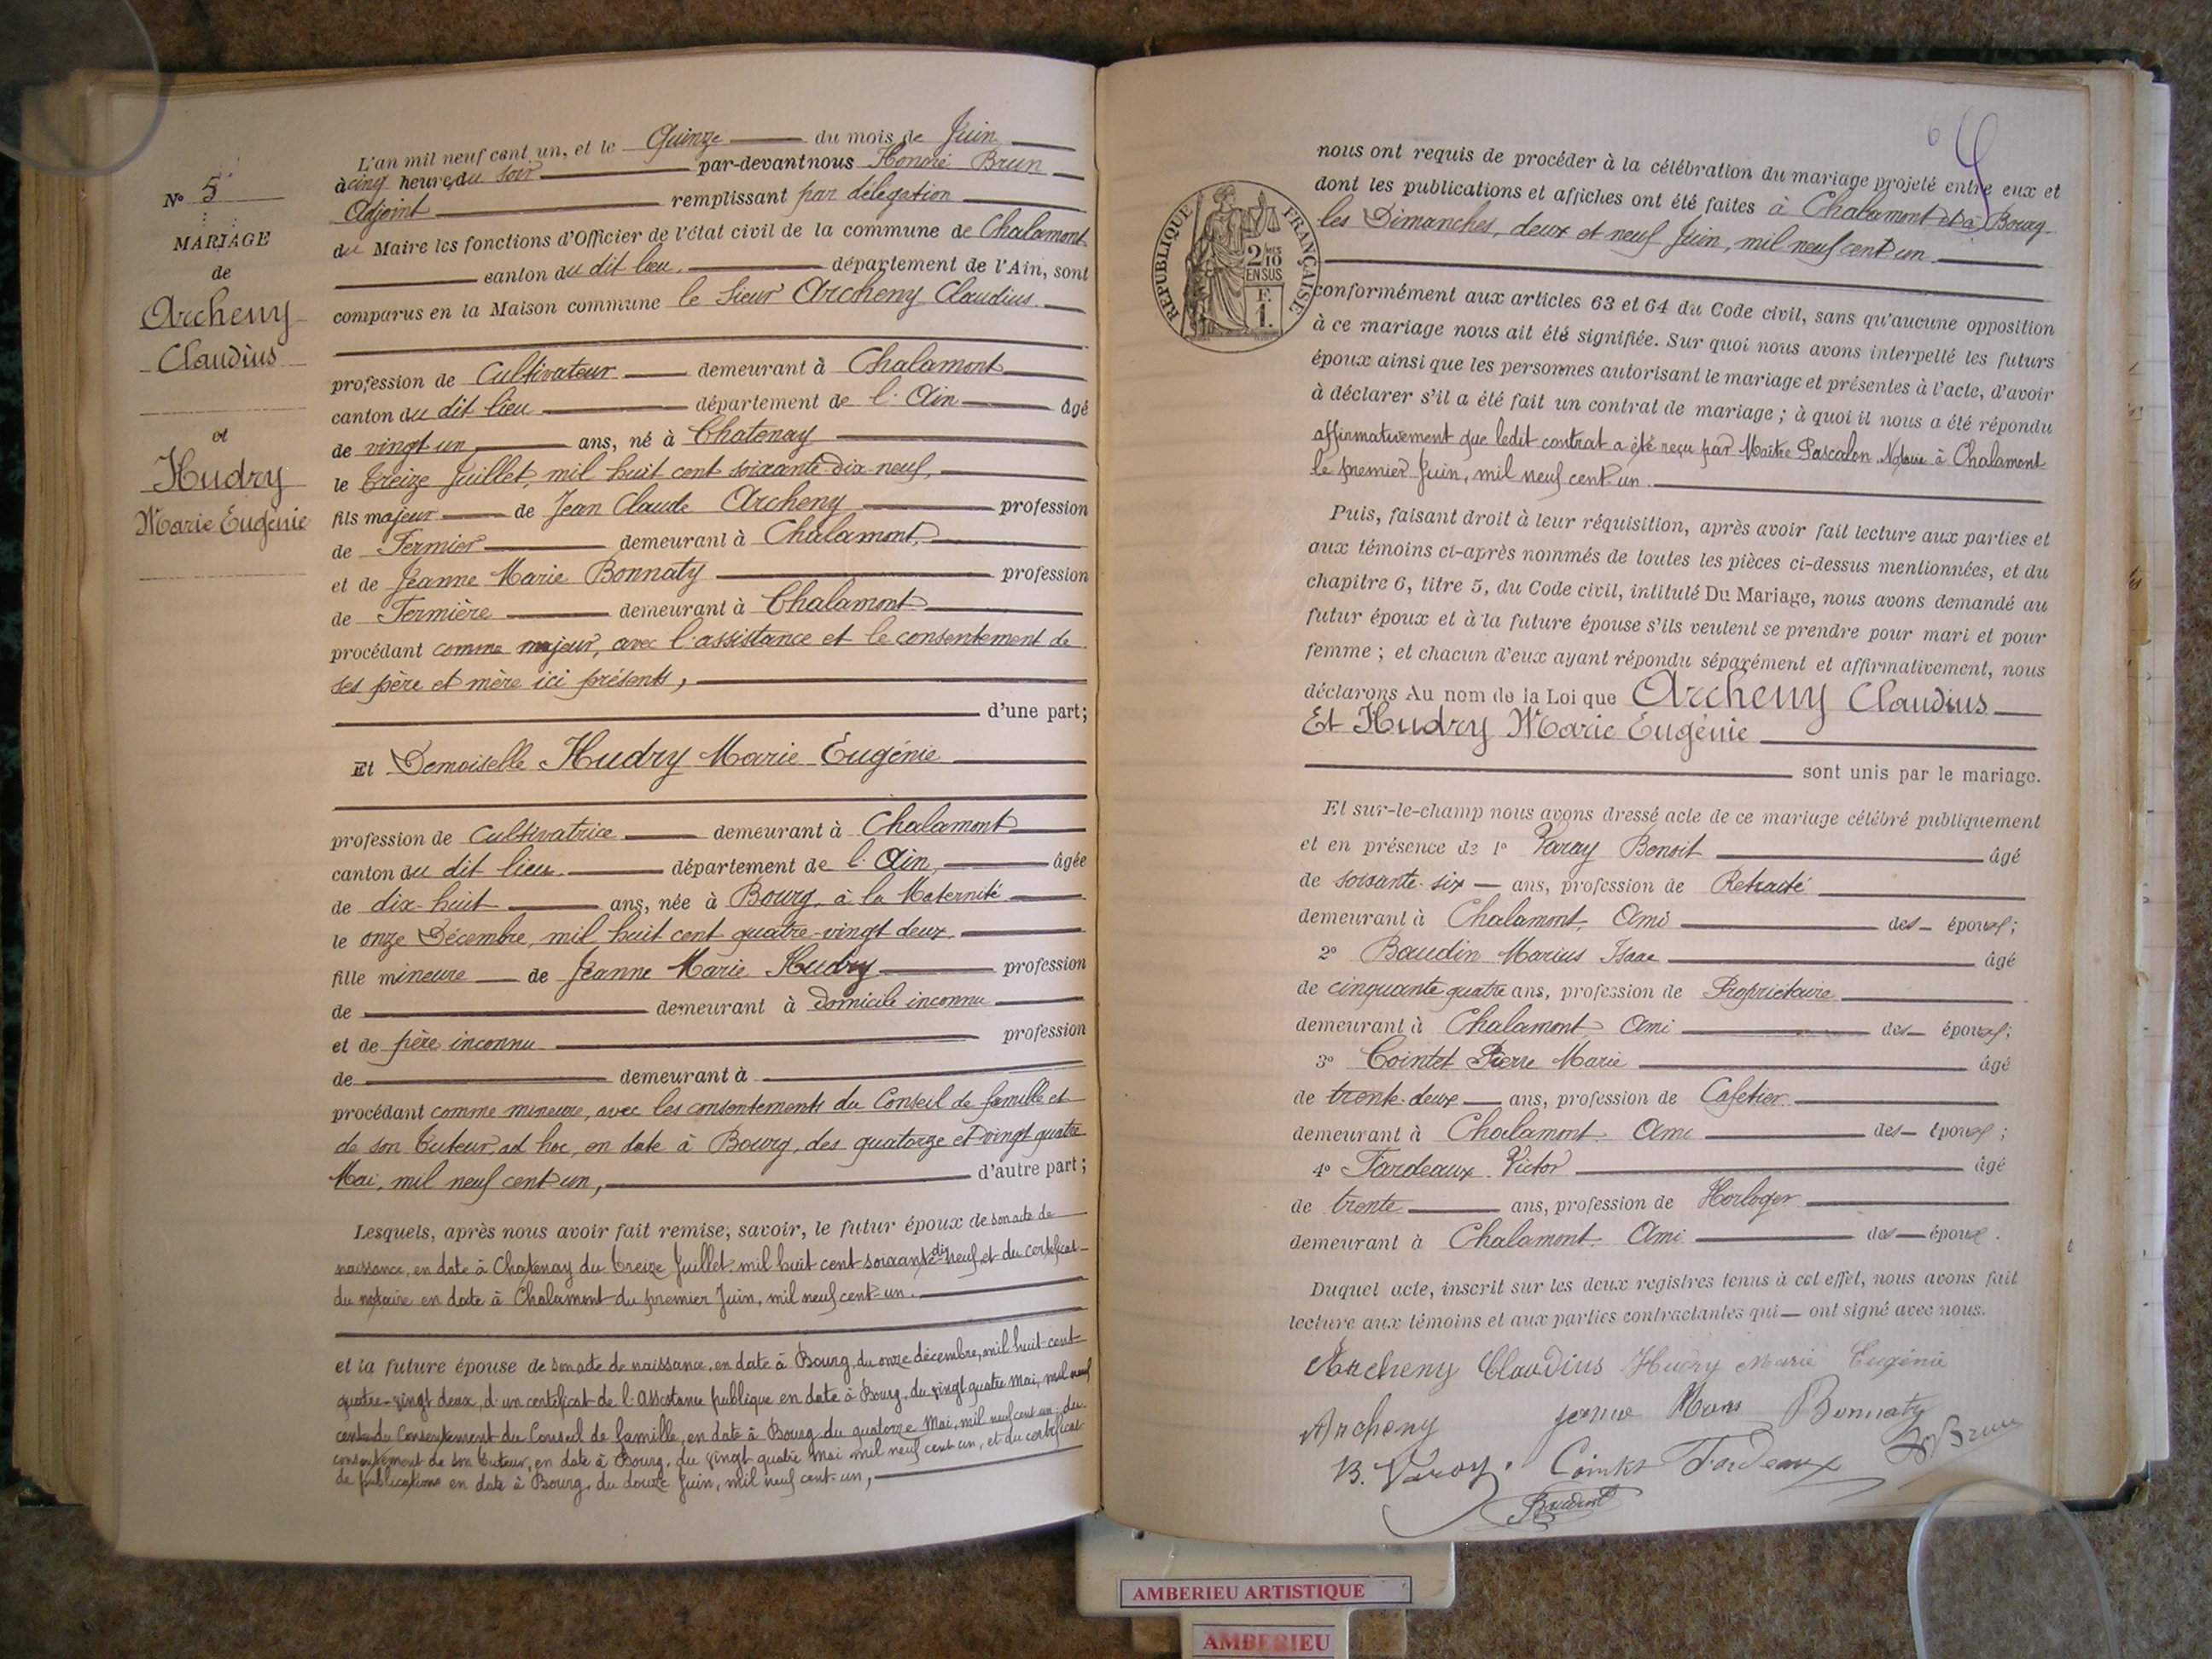 N° 5
MARIAGE
de
Archeny
Claudius
et
Hudry
Marie Eugénie
L'an mil neuf cent un, et le Quinze du mois de Juin
à cinq heures du soir par-devant nous Honoré Brun
Adjoint remplissant par délégation
du Maire les fonctions d'Officier de l'état civil de la commune de Chalamont
canton du dit lieu, département de l'Ain, sont
comparus en la Maison commune le Sieur Archeny Claudius
profession de Cultivateur demeurant à Chalamont
canton du dit lieu département de l'Ain âgé
de vingt un ans, né à Chatenay
le treize Juillet, mil huit cent soixante-dix-neuf,
fils majeur de Jean Claude Archeny profession
de Fermier demeurant à Chalamont,
et de Jeanne Marie Bonnaty profession
de Fermière demeurant à Chalamont
procédant comme majeur, avec l'assistance et le consentement de
ses père et mère ici présents,
d'une part;
Et Demoiselle Hudry Marie Eugénie
profession de Cultivatrice demeurant à Chalamont
canton du dit lieu département de l'Ain, âgée
de dix-huit ans, née à Bourg, à la Maternité
le onze Décembre, mil huit cent quatre-vingt deux,
fille mineure de Jeanne Marie Hudry profession
de demeurant à domicile inconnu
et de père inconnu profession
de demeurant à
procédant comme mineure, avec les consentements du Conseil de famille et
de son Tuteur ad hoc, en date à Bourg, des quatorze et vingt quatre
Mai, mil neuf cent un, d'autre part;
Lesquels, après nous avoir fait remise, savoir, le futur époux de son acte de
naissance, en date à Chatenay du treize Juillet mil huit cent soixante-dix-neuf, et du certificat
du notaire en date à Chalamont du premier Juin, mil neuf cent un.
et la future épouse de son acte de naissance, en date à Bourg, du onze décembre, mil huit cent
quatre-vingt deux, d'un certificat de l'Assistance publique en date à Bourg, du vingt quatre Mai, mil neuf
cent du Consentement du Conseil de famille, en date à Bourg du quatorze Mai, mil neuf cent un, du
consentement de son tuteur, en date à Bourg, du vingt quatre Mai mil neuf cent un, et du certificat
de publications en date à Bourg, du douze Juin, mil neuf cent un,
6
RÉPUBLIQUE FRANÇAISE
2/10
EN SUS
F.
1.
nous ont requis de procéder à la célébration du mariage projeté entre eux et
dont les publications et affiches ont été faites à Chalamont et à Bourg
les Dimanches, deux et neuf Juin, mil neuf cent un
conformément aux articles 63 et 64 du Code civil, sans qu'aucune opposition
à ce mariage nous ait été signifiée. Sur quoi nous avons interpellé les futurs
époux ainsi que les personnes autorisant le mariage et présentes à l'acte, d'avoir
à déclarer s'il a été fait un contrat de mariage; à quoi il nous a été répondu
affirmativement que ledit contrat a été reçu par Maître Pascalon Notaire à Chalamont
le premier Juin, mil neuf cent un.
Puis, faisant droit à leur réquisition, après avoir fait lecture aux parties et
aux témoins ci-après nommés de toutes les pièces ci-dessus mentionnées, et du
chapitre 6, titre 5, du Code civil, intitulé Du Mariage, nous avons demandé au
futur époux et à la future épouse s'ils veulent se prendre pour mari et pour
femme; et chacun d'eux ayant répondu séparément et affirmativement, nous
déclarons Au nom de la Loi que Archeny Claudius
Et Hudry Marie Eugénie
sont unis par le mariage.
Et sur-le-champ nous avons dressé acte de ce mariage célébré publiquement
et en présence de 1° Varay Benoit âgé
de soixante-six ans, profession de Retraité
demeurant à Chalamont, Ami des époux;
2° Baudin Marius Isaac âgé
de cinquante quatre ans, profession de Propriétaire
demeurant à Chalamont Ami des époux;
3° Cointet Pierre Marie âgé
de trente-deux ans, profession de Cafetier
demeurant à Chalamont Ami des époux;
4° Tardeaux Victor âgé
de trente ans, profession de Horloger
demeurant à Chalamont Ami des époux.
Duquel acte, inscrit sur les deux registres tenus à cet effet, nous avons fait
lecture aux témoins et aux parties contractantes qui ont signé avec nous.
Archeny Claudius Hudry Marie Eugénie
Archeny Bonnaty
Brun
B. Varay Cointet Tardeaux
Baudin
AMBERIEU ARTISTIQUE
AMBERIEU